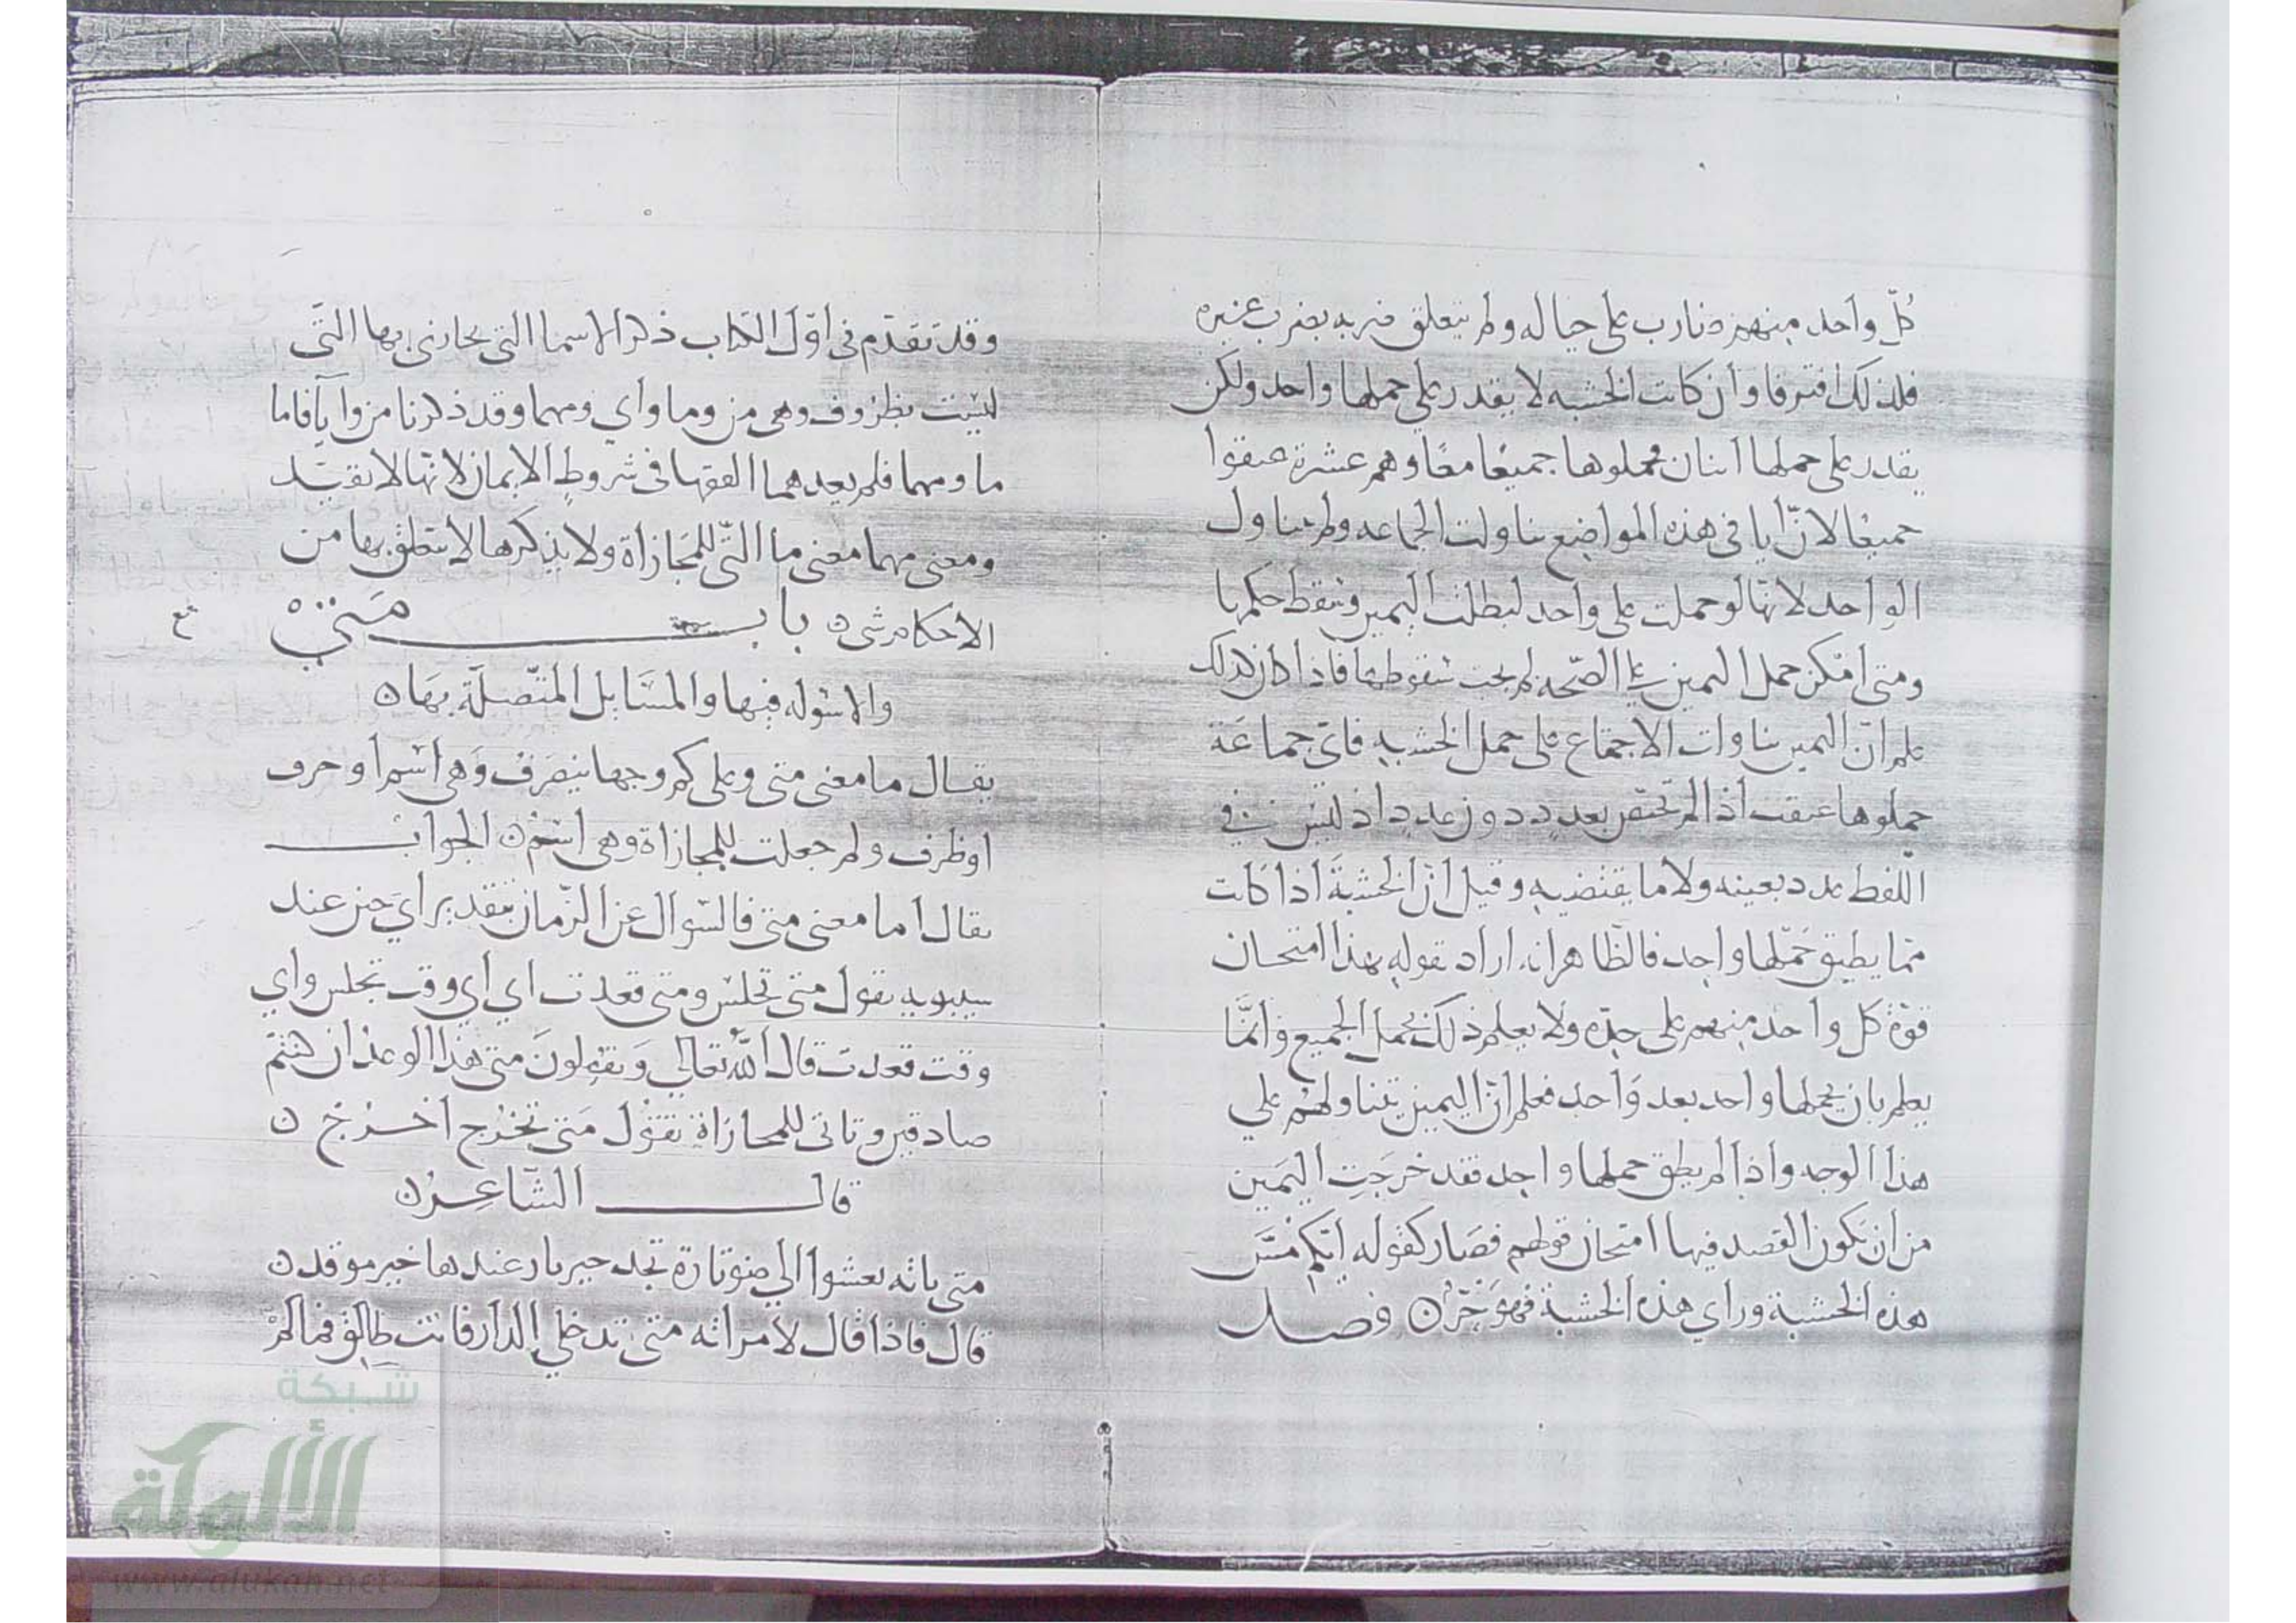 كلّ واحد منهم ضارب على حياله ولم يتعلق ضربه بضرب غيره
فلذلك افترقا وان كانت الخشبه لا يقدر على حملها واحد ولكن
يقدر على حملها اثنان فحملوها جميعًا معًا وهم عشرة عتقوا
جميعًا لانّ ايا في هذه المواضع تناولت الجماعه ولم تتناول
الواحد لانها لو حملت على واحد لبطلت اليمين وسقط حكمها
ومتى امكن حمل اليمين على الصّحه لم يجب سقوطها فاذا كان كذلك
علم انّ اليمين تناولت الاجتماع على حمل الخشبه فاي جماعة
حملوها عتقت اذا لم تختص بعدد دون عدد اذ ليس في
اللّفظ عدد بعينه ولا ما يقتضيه وقيل انّ الخشبة اذا كانت
ممّا يطيق حملها واحد فالظّاهر انه اراد بقوله هذا امتحان
قوّة كل واحد منهم على حدّه ولا يعلم ذلك بحمل الجميع وانّما
يعلم بان يحملها واحد بعد واحد فعلم انّ اليمين تتناولهم على
هذا الوجه واذا لم يطق حملها واحد فقد خرجت اليمين
من ان تكون القصد فيها امتحان قولهم فصار كقوله ايّكم مسّ
هذه الخشبة وراي هذه الخشبة فهو حرّ ن فصل
وقد تقدّم في اوّل الكتاب ذكر الاسما التي يجازى بها التّي
ليست بظروف وهي من وما واي ومهما وقد ذكرنا من وايّا فاما
ما ومهما فلم يعدهما الفقها في شروط الايمان لانّها لا تقيّد
ومعنى مهما معنى ما التّي للمجازاة ولا يذكرها لا يتعلق بها من
الاحكام شي ن باب متى
والاسوله فيها والمسايل المتّصلة بها ن
يقال ما معنى متى وعلى كم وجها ينصرف وهي اسم او حرف
او ظرف ولم جعلت للمجازاة وهي اسم ن الجواب
يقال اما معنى متى فالسّوال عن الزّمان بتقدير اي حين عند
سيبويه تقول متى تجلس ومتى قعدت اي اي وقت تجلس واي
وقت قعدت قال اللّه تعالى ويقولون متى هذا الوعد ان كنتم
صادقين وتاتي للمجازاة تقول متى تخرج اخرج ن
قال الشّاعر ن
متى تاته تعشوا الى ضو ناره تجد خير نار عندها خير موقد ن
قال فاذا قال لامراته متى تدخلي الدار فانت طالق فما لم
شبكة
الألوكة
www.alukah.net